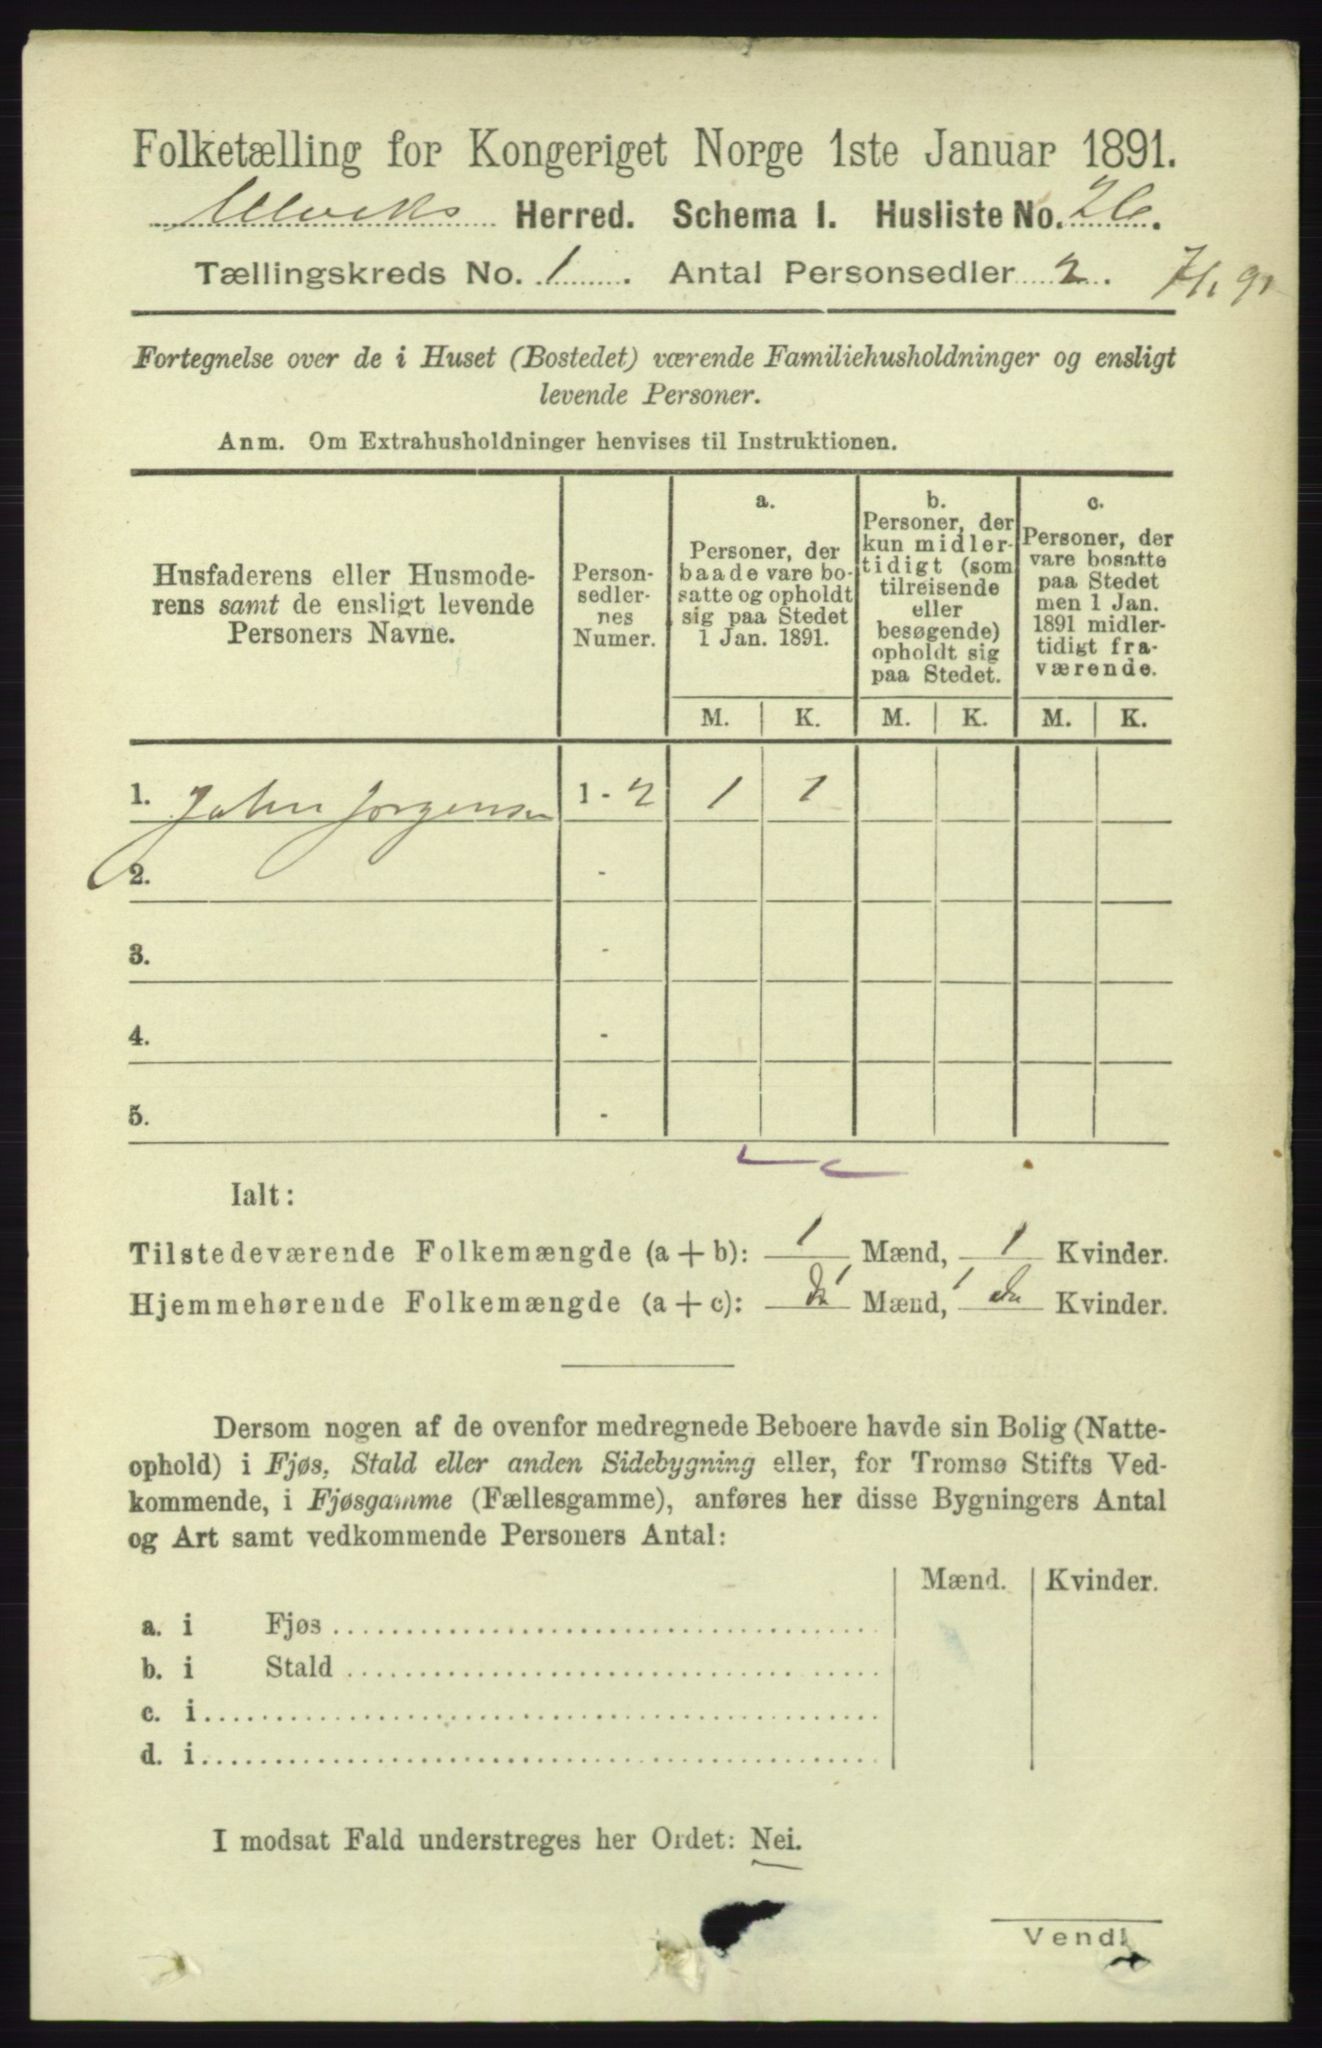 Folketælling for Kongeriget Norge 1ste Januar 1891.
Ulviks Herred. Schema I. Husliste No. 26.
Tællingskreds No. 1. Antal Personsedler 2. 7/1 91
Fortegnelse over de i Huset (Bostedet) værende Familiehusholdninger og ensligt
levende Personer.
Anm. Om Extrahusholdninger henvises til Instruktionen.
Husfaderens eller Husmode-
rens samt de ensligt levende
Personers Navne.
Person-
sedler-
nes
Numer.
a.
Personer, der
baade vare bo-
satte og opholdt
sig paa Stedet
1 Jan. 1891.
b.
Personer, der
kun midler-
tidigt (som
tilreisende
eller
besøgende)
opholdt sig
paa Stedet.
c.
Personer, der
vare bosatte
paa Stedet
men 1 Jan.
1891 midler-
tidigt fra-
værende.
M. K. M. K. M. K.
1. John Jørgensen 1 - 2 1 1
2. -
3. -
4. -
5. -
Ialt:
Tilstedeværende Folkemængde (a + b): 1 Mænd, 1 Kvinder.
Hjemmehørende Folkemængde (a + c): do 1 Mænd, 1 do Kvinder.
Dersom nogen af de ovenfor medregnede Beboere havde sin Bolig (Natte-
ophold) i Fjøs, Stald eller anden Sidebygning eller, for Tromsø Stifts Ved-
kommende, i Fjøsgamme (Fællesgamme), anføres her disse Bygningers Antal
og Art samt vedkommende Personers Antal:
Mænd. Kvinder.
a. i Fjøs
b. i Stald
c. i
d. i
I modsat Fald understreges her Ordet: Nei.
Vend!